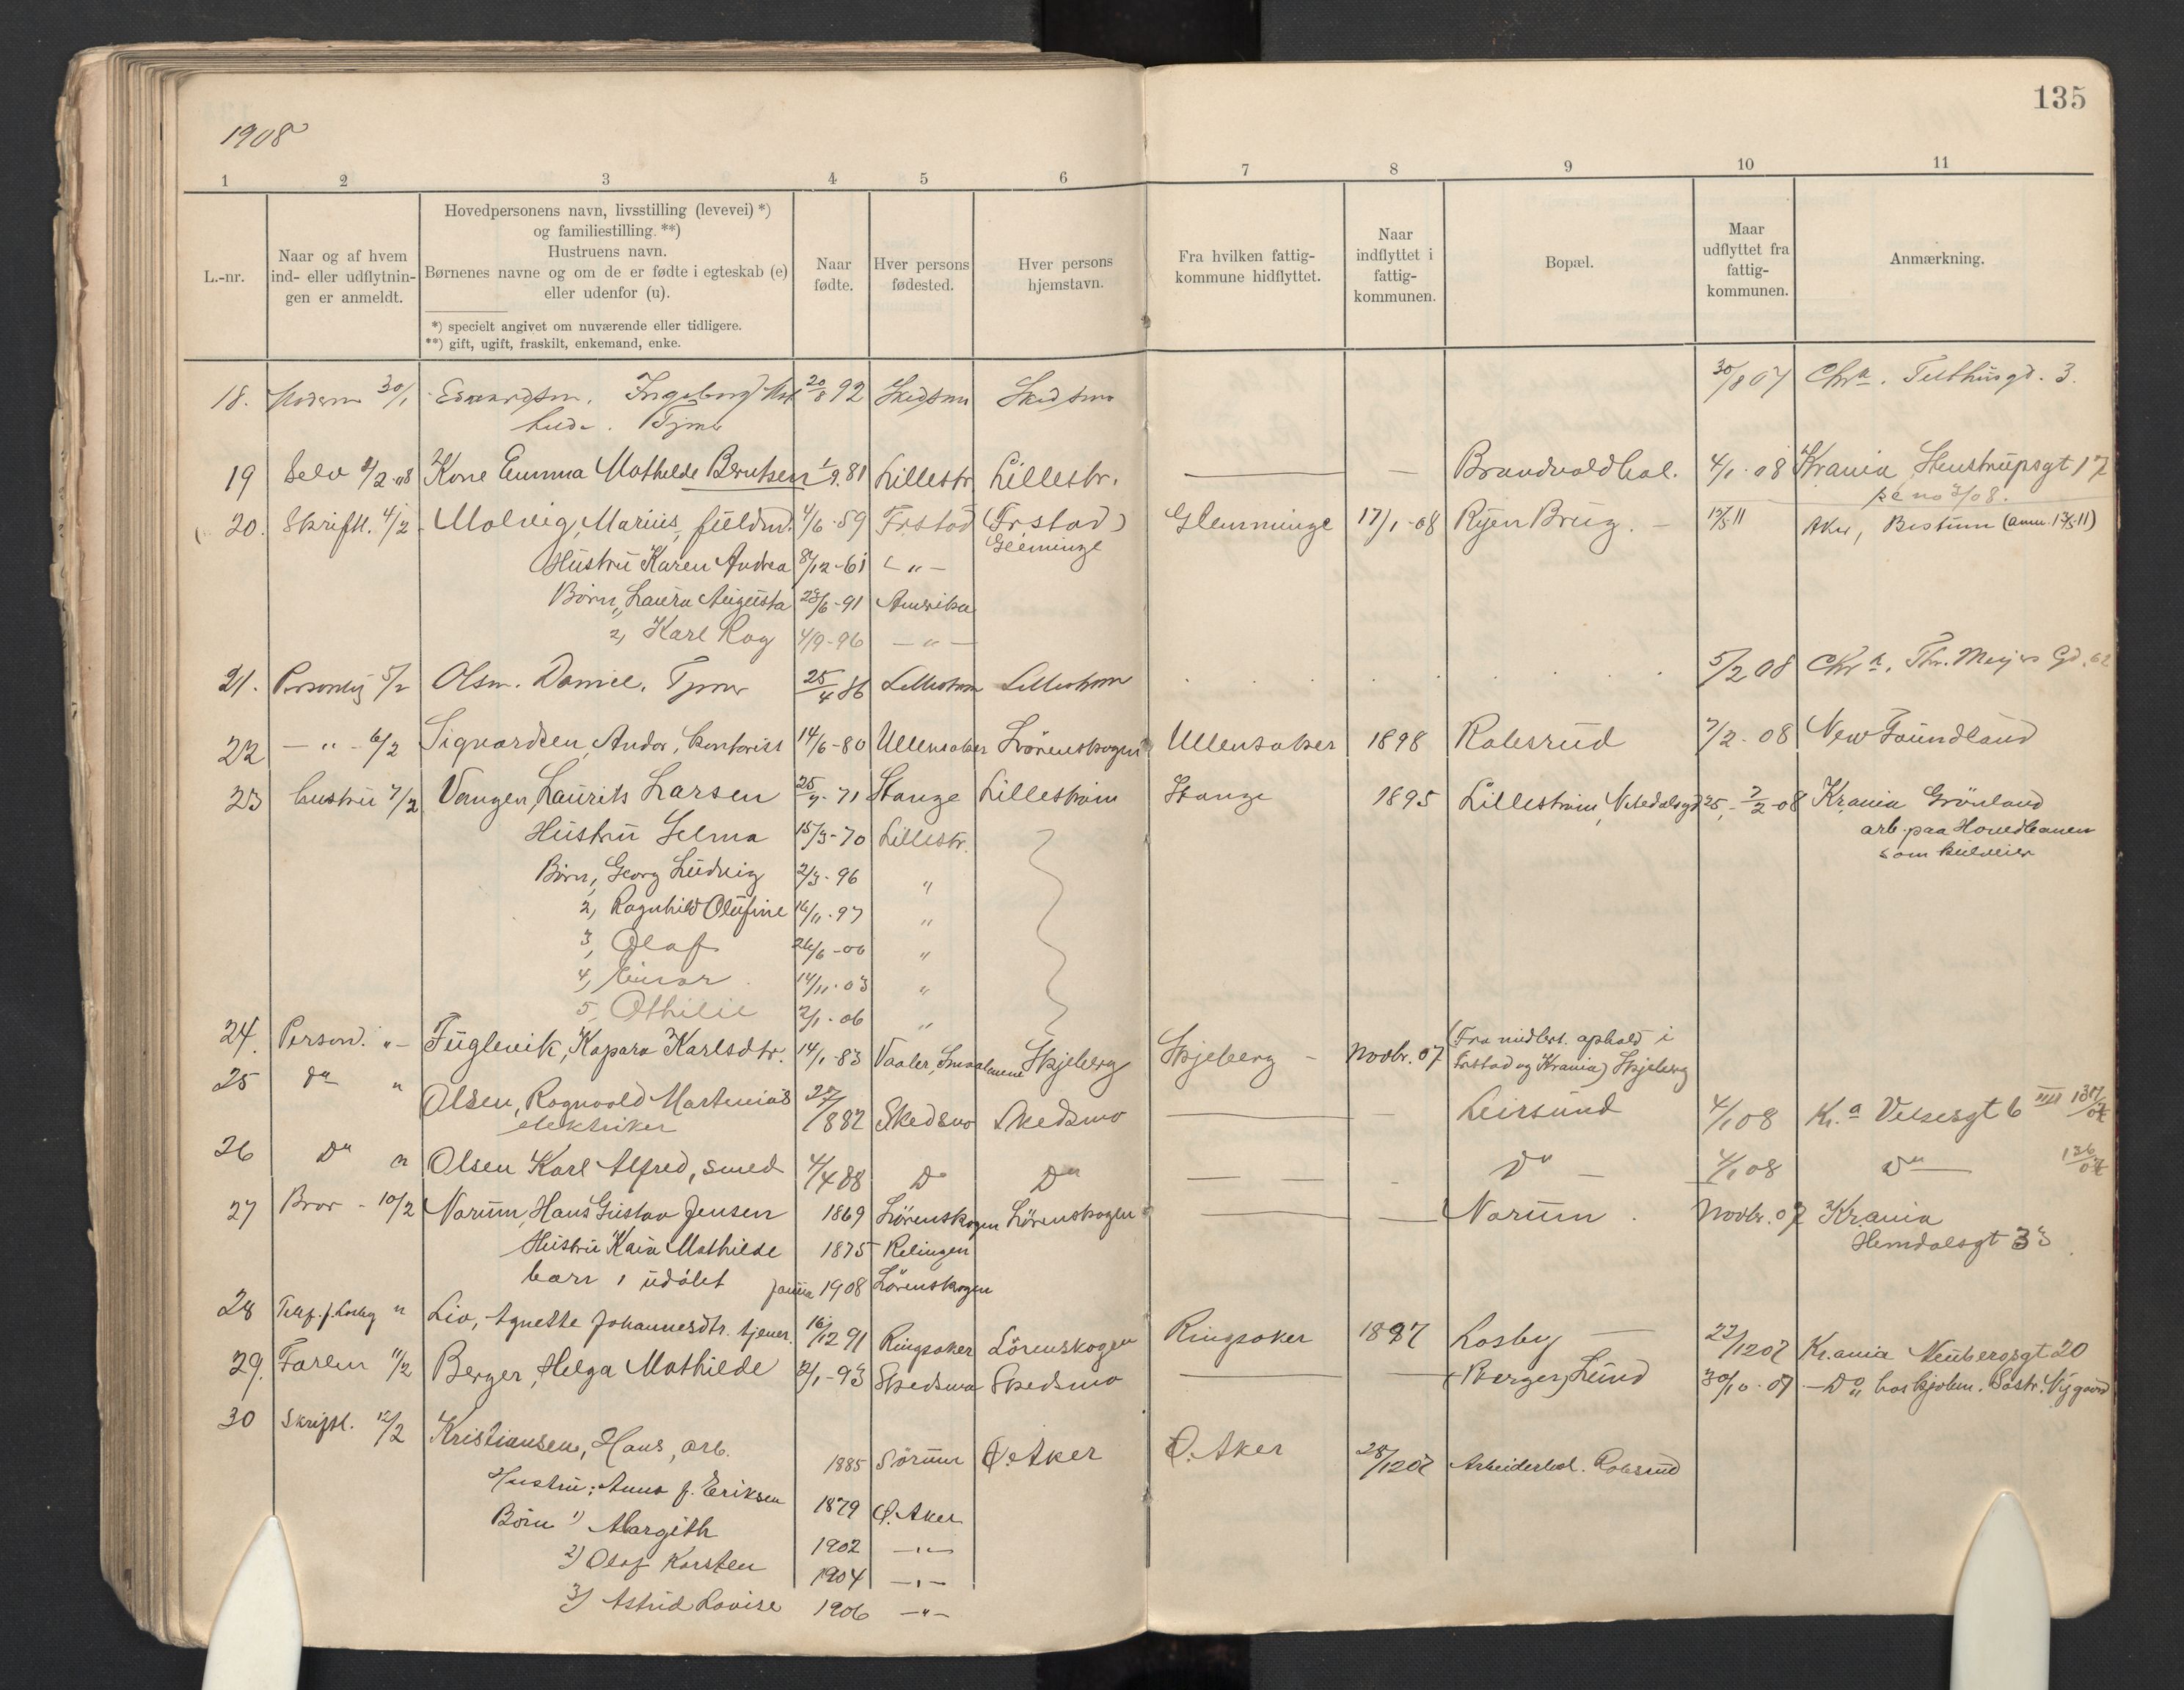 1908
135
1 2 3 4 5 6 7 8 9 10 11
L.-nr.
Naar og af hvem
ind- eller udflytnin-
gen er anmeldt.
Hovedpersonens navn, livsstilling (levevei) *)
og familiestilling. **)
Hustruens navn.
Børnenes navne og om de er fødte i egteskab (e)
eller udenfor (u).
*) specielt angivet om nuværende eller tidligere.
**) gift, ugift, fraskilt, enkemand, enke.
Naar
fødte.
Hver persons
fødested.
Hver persons
hjemstavn.
Fra hvilken fattig-
kommune hidflyttet.
Naar
indflyttet i
fattig-
kommunen.
Bopæl.
Maar
udflyttet fra
fattig-
kommunen.
Anmærkning.
18. Moderen 30/1 Ingeborg 20/8 92 Skedsmo Skedsmo 30/8 07 Chra. Telthusgd. 3.
Tjener
19 Selv 1/2 08 Kone Emma Mathilde Berntsen 1/9. 81 Lillestr. Lillestr. — — Brandvoldhol. 4/1 - 08 Krania Stenstrupsgt 17
20. Skriftl. 4/2 Molvig, Marius, 4/6 - 59 Frstad (Frstad) Glemminge 17/1 - 08 Ryen Brug. - Aker, Bestum
Glemminge
Hustru Karen Andrea -61 - " -
Børn, Laura Augusta 23/6 - 91 Amerika
2, Karl Roy 4/9 - 96 - " -
21. Personlig 5/2 Olsen. Daniel. Tjener 25/4 86 Lillestrøm Lillestrøm 5/2 08 Chra. Thv. Meyers Gd. 62
22 - " - 6/2 Sigvardsen, Andor, kontorist 14/6 - 80 Ullensaker Lørenskogen Ullensaker 1898 Robsrud 7/2 - 08 New Foundland
23 hustru 7/2 Vangen, Laurits Larsen 71 Stange Lillestrøm Stange 1895 Lillestrøm, Nitedalsgd 25, - 7/2 - 08 Krania Grönland
arb. paa Hovedbanen
som
Hustru Helma 15/3 - 70 Lillestr.
Børn, Georg Ludvig 2/3 - 96 "
2, Ragnhild Olufine 16/11 - 97 "
3, Olaf 26/6 - 00 "
4, Einar 14/11 - 03 "
5, Othilie 2/1 - 06 "
24. Person. " - Fuglevik, Kaspara Karlsdtr. 14/1 - 83 Vaaler, Smaalenene Skjeberg Skjeberg - Novbr. 07 (Fra midlert. ophold i
Frstad og Krania) Skjeberg
25 do " Olsen, Ragnvald Martinius 27/1 882 Skedsmo Skedsmo — Leirsund 4/1 08 Kr.a Velsesgt 6 IIII 137/07
elektriker
26 Do " Olsen Karl Alfred, smed 4/4 88 Do Do — — - Do - 4/1 08 Do — 136/07
27 Bror - 10/2 Norum, Hans Gustav Jensen 1869 Lørenskogen Lørenskogen — — Norum. Novbr. 07 Krania
Hemdalsgt 33
Hustru Kaia Mathilde 1875 Relingen
barn 1 udøbt 1908 Lørenskogen
28 Telef. f. Losby " Lio, Agnethe Johannesdtr. tjener. 16/12 91 Ringsaker Lörenskogen Ringsaker 1897 Losby — 22/12 07 Kr.ania Neuberggt 20
29. Faren 11/2 Berger, Helga Mathilde 2/1 - 93 Skedsmo Skedsmo — — (Berger) Lund 30/10 - 07 - Do hos
30 Skriftl. 12/2 Kristiansen, Hans, arb. 1885 Sörum Ø. Aker Ø. Aker 28/12 07 Arbeiderbol. Robsrud
Hustru: Anna f. Eriksen 1879 Ø. Aker
Börn 1) Margith 1902 - " -
2) Olaf Karsten 1904 - " -
3) Astrid Lovise 1906 - " -